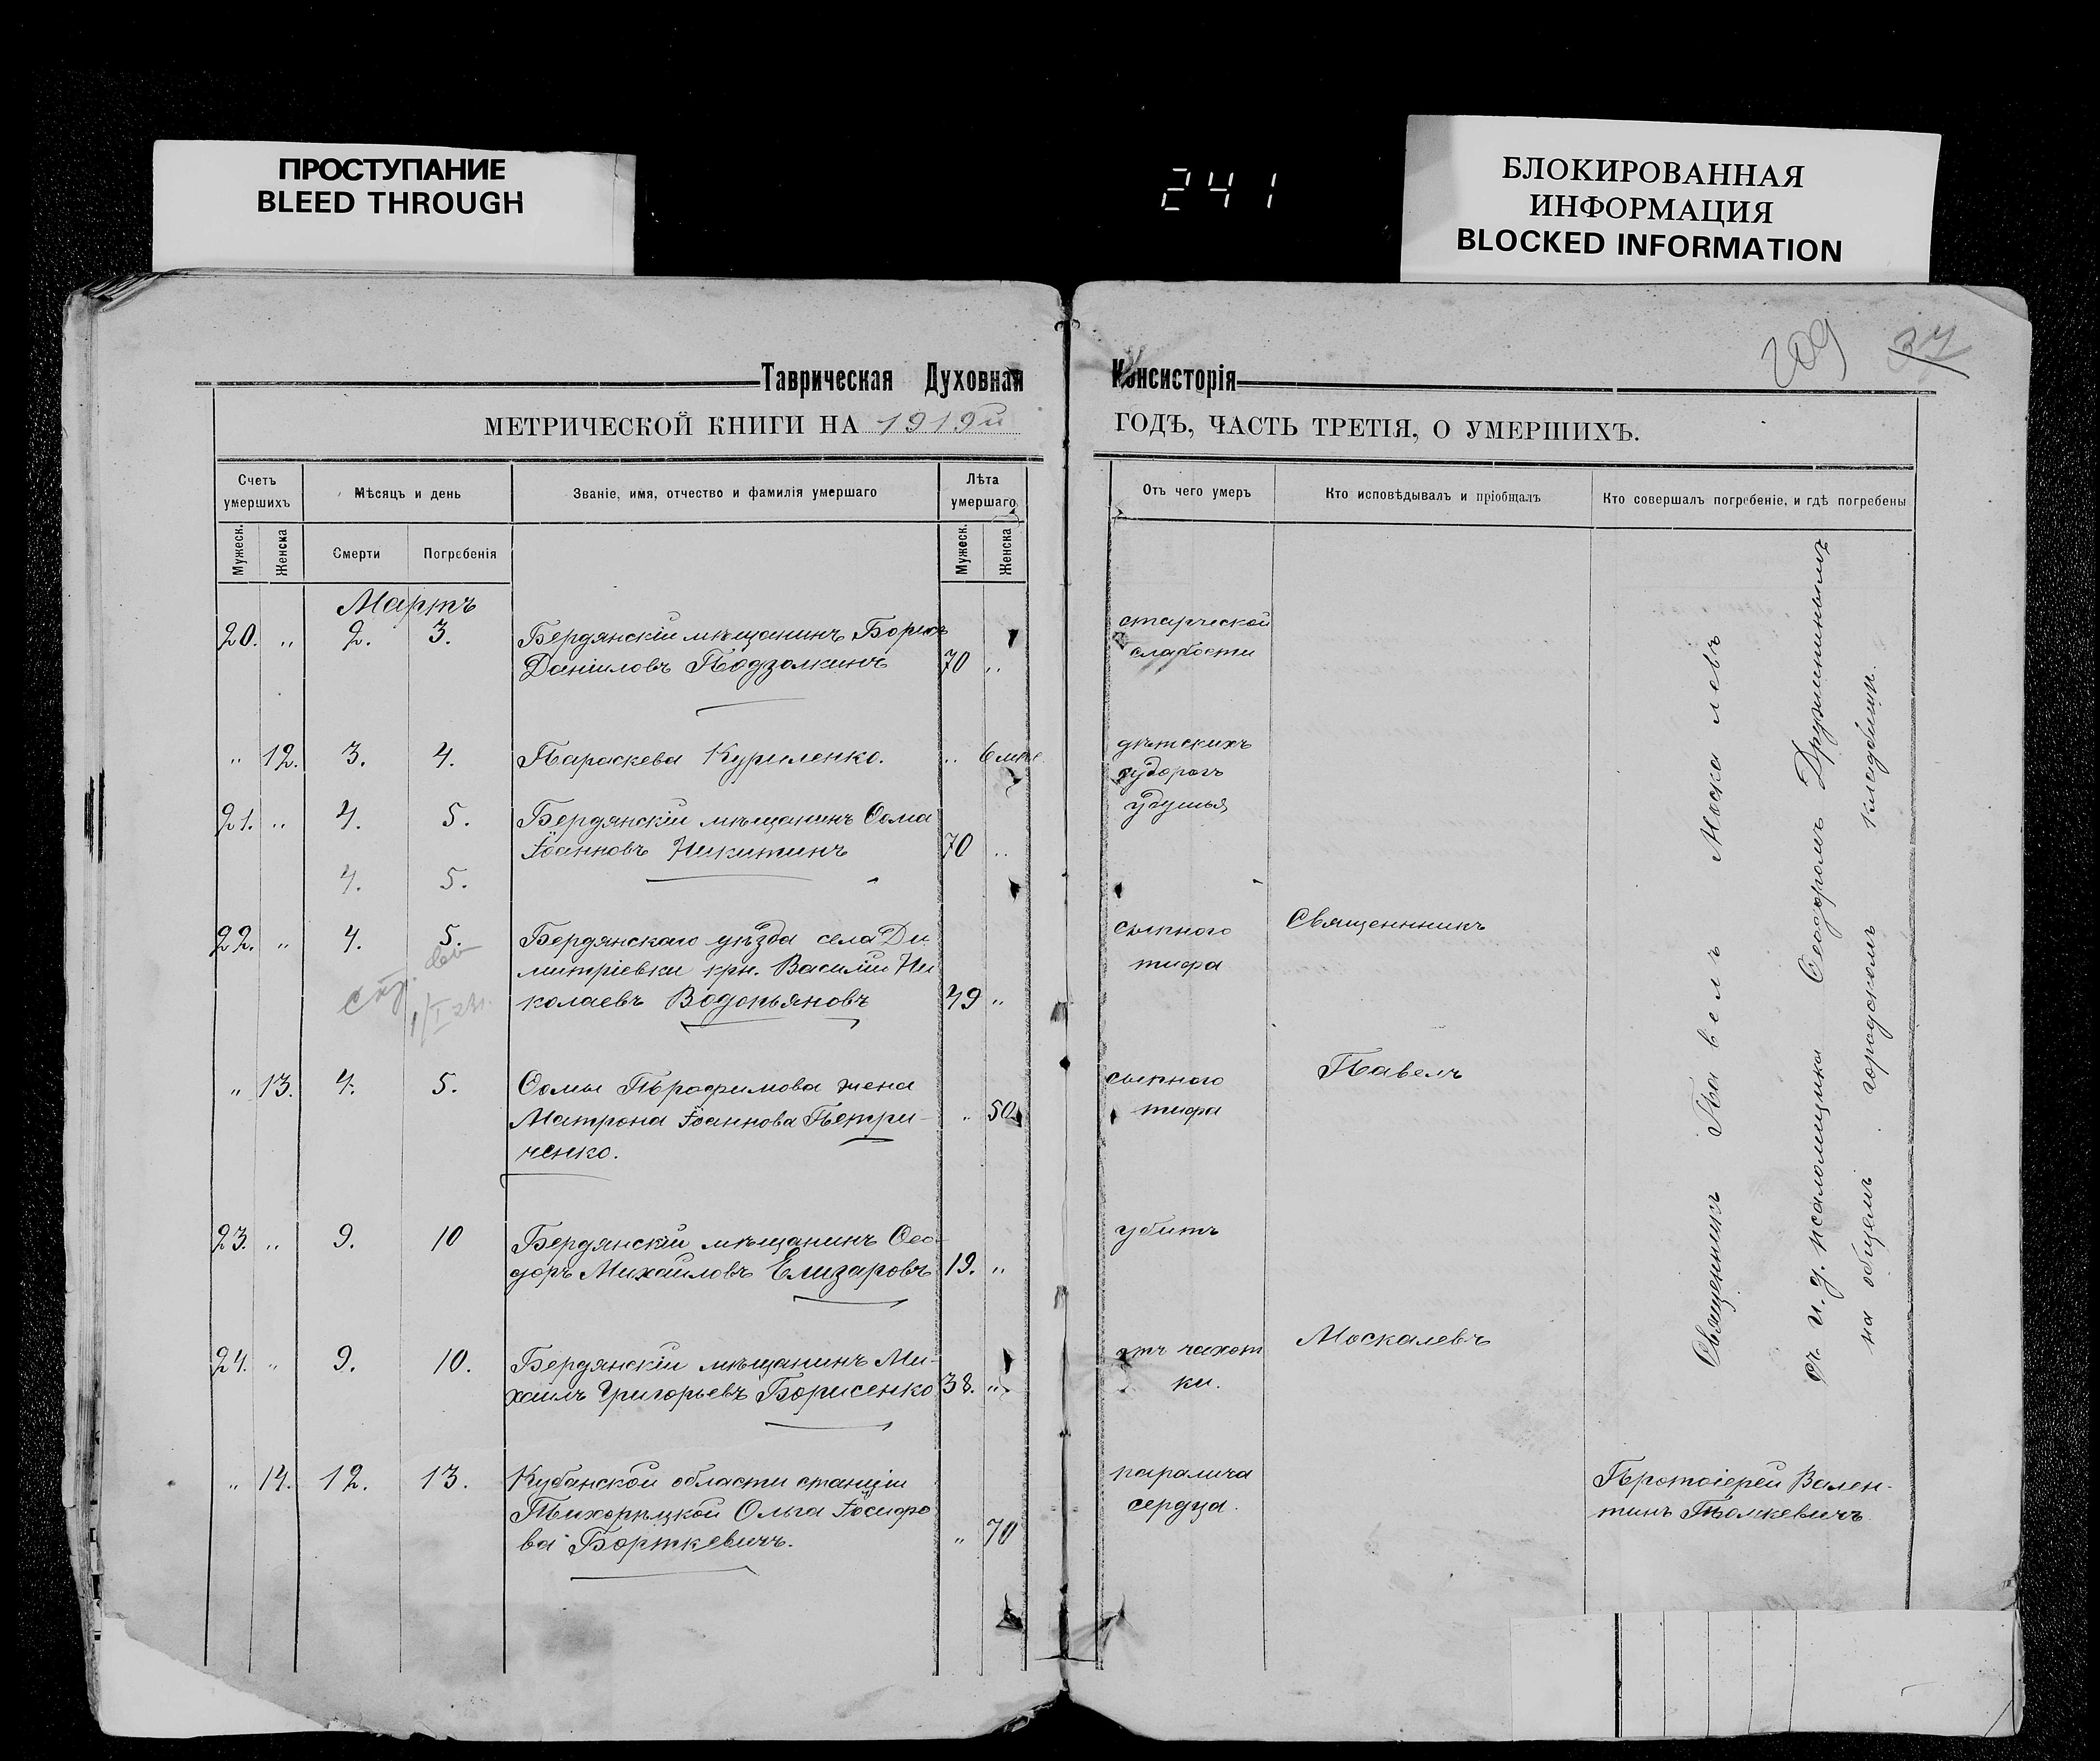 ПРОСТУПАНИЕ
BLEED THROUGH
241
БЛОКИРОВАННАЯ
ИНФОРМАЦИЯ
BLOCKED INFORMATION
209 37
Таврическая Духовная Консисторія
МЕТРИЧЕСКОЙ КНИГИ НА 1919й ГОДЪ, ЧАСТЬ ТРЕТІЯ, О УМЕРШИХЪ.
Счетъ умершихъ
Мѣсяцъ и день
Званіе, имя, отчество и фамилія умершаго
Лѣта умершаго
Отъ чего умеръ
Кто исповѣдывалъ и пріобщалъ
Кто совершалъ погребеніе, и гдѣ погребены
Мужеск. Женска Смерти Погребенія Мужеск. Женска
Мартъ
20. „ 2. 3. Бердянскій мѣщанинъ Борисъ старческой
Даніиловъ Подзолкинъ 70 „ слабости
„ 12. 3. 4. Параскева Куриленко. „ 6 мѣс. дѣтскихъ
судорогъ
21. „ 4. 5. Бердянскій мѣщанинъ Ѳома удушья
Іоанновъ Никитинъ 70 „
4. 5.
22. „ 4. 5. Бердянскаго уѣзда села Ди сыпного Священникъ
митріевки крн. Василій Ни тифа
колаевъ Водопьяновъ 49 „
„ 13. 4. 5. Ѳомы Трофимова жена сыпного Павелъ
Матрона Іоаннова Петри- „ 50 тифа
ченко.
23. „ 9. 10 Бердянскій мѣщанинъ Ѳео- убитъ
доръ Михаиловъ Елизаровъ 19. „
24. „ 9. 10. Бердянскій мѣщанинъ Ми- отъ чахот Москалевъ
хаилъ Григорьевъ Борисенко 38. „ ки.
„ 14. 12. 13. Кубанской области станціи паралича Протоіерей Вален-
Тихорѣцкой Ольга Іосифо сердца. тинъ Толкевичъ
ва Борткевичъ. „ 70
Священникъ Павелъ Москалевъ
съ и. д. псаломщика Ѳеодоромъ Дружининымъ
на общемъ городскомъ кладбищи.